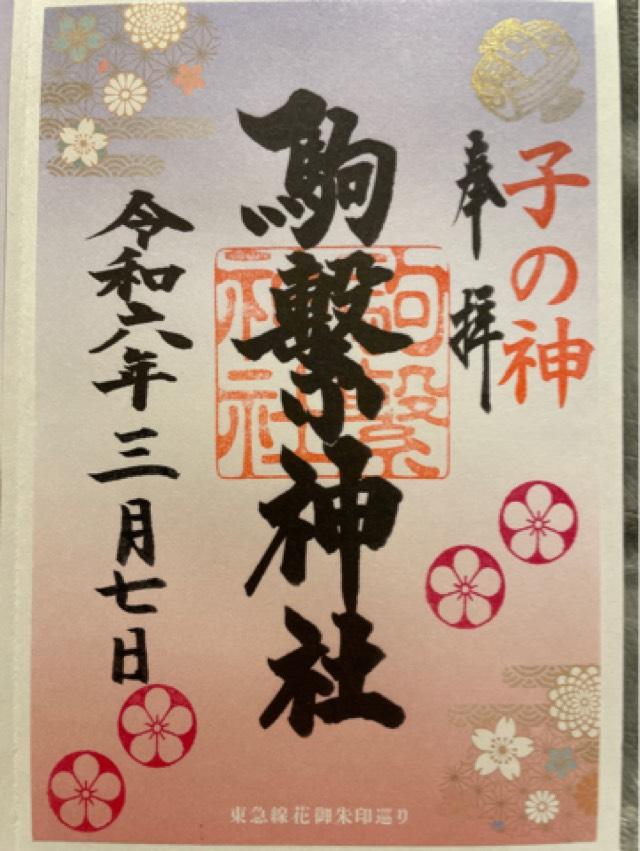 子の神
奉拝
駒繋神社
駒繋神社
令和六年三月七日
東急線花御朱印巡り